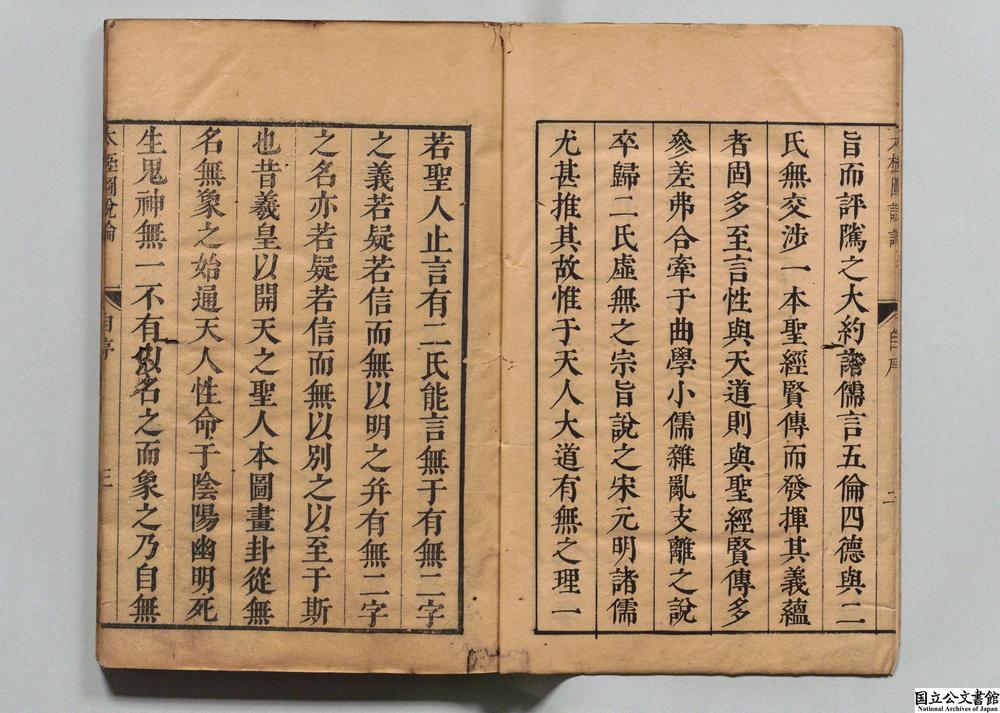 太極圖說論
自序
二
旨而評隲之大約諸儒言五倫四德與二
氏無交涉一本聖經賢傳而發揮其義蘊
者固多至言性與天道則與聖經賢傳多
參差弗合牽于曲學小儒雜亂支離之說
卒歸二氏虛無之宗旨說之宋元明諸儒
尤甚推其故惟于天人大道有無之理一
若聖人止言有二氏能言無于有無二字
之義若疑若信而無以明之幷有無二字
之名亦若疑若信而無以別之以至于斯
也昔羲皇以開天之聖人本圖畫卦從無
名無象之始通天人性命于陰陽幽明死
生鬼神無一不有以名之而象之乃自無
太極圖說論
自序
三
国立公文書館
National Archives of Japan